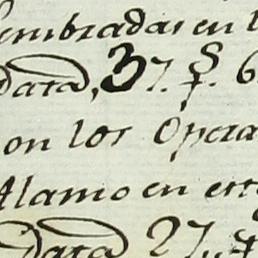 sembradas en l
Data, 37. p.s 6
on los Opera
Alamo en est
Data 27, p